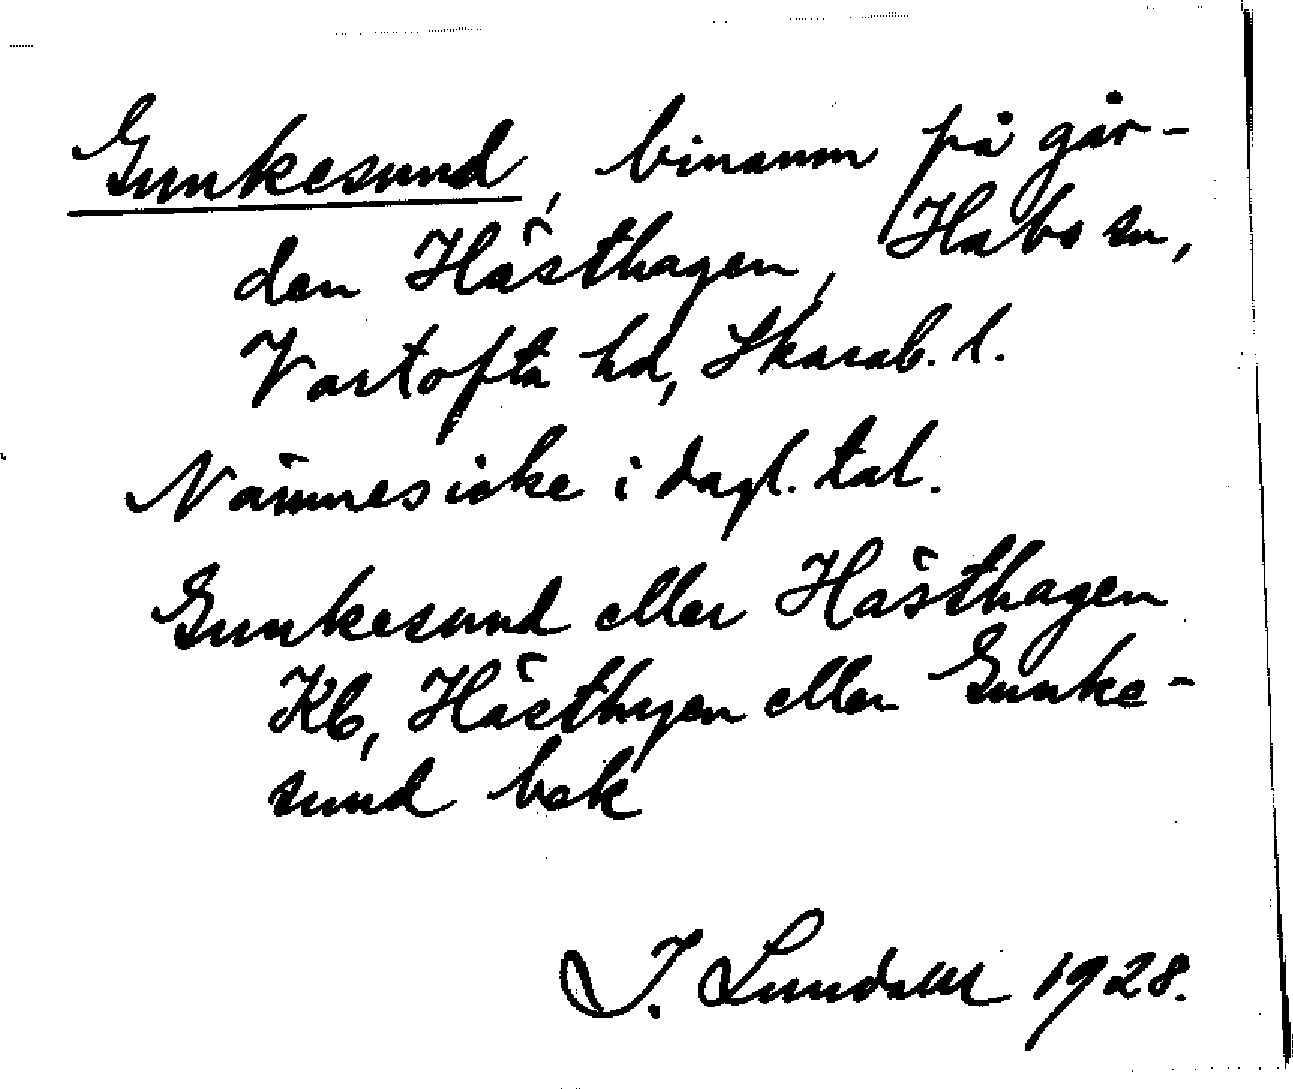 Gunkesund, binamn på går-
den Hästhagen, Habo sn,
Vartofta hd, Skarab. l.
Nämnes icke i dagl. tal.
Gunkesund eller Hästhagen
Kb, Hästhgen eller Gunke-
sund bek
I. Lundahl 1928.